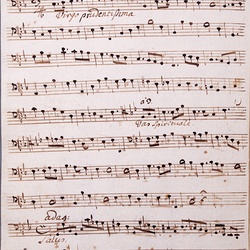 Virgo prudentissima
Vas spirituale
adag:
Salus.